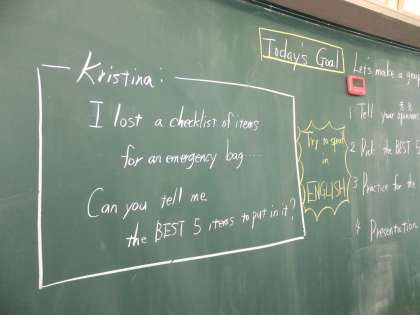 Kristina:
I lost a checklist of items
for an emergency bag....
Can you tell me
the BEST 5 items to put in it?
Today's Goal
Try to speak
in
ENGLISH!
Let's make a
1 Tell your
2 Pick the BEST 5
3 Practice for the
4 Presentation